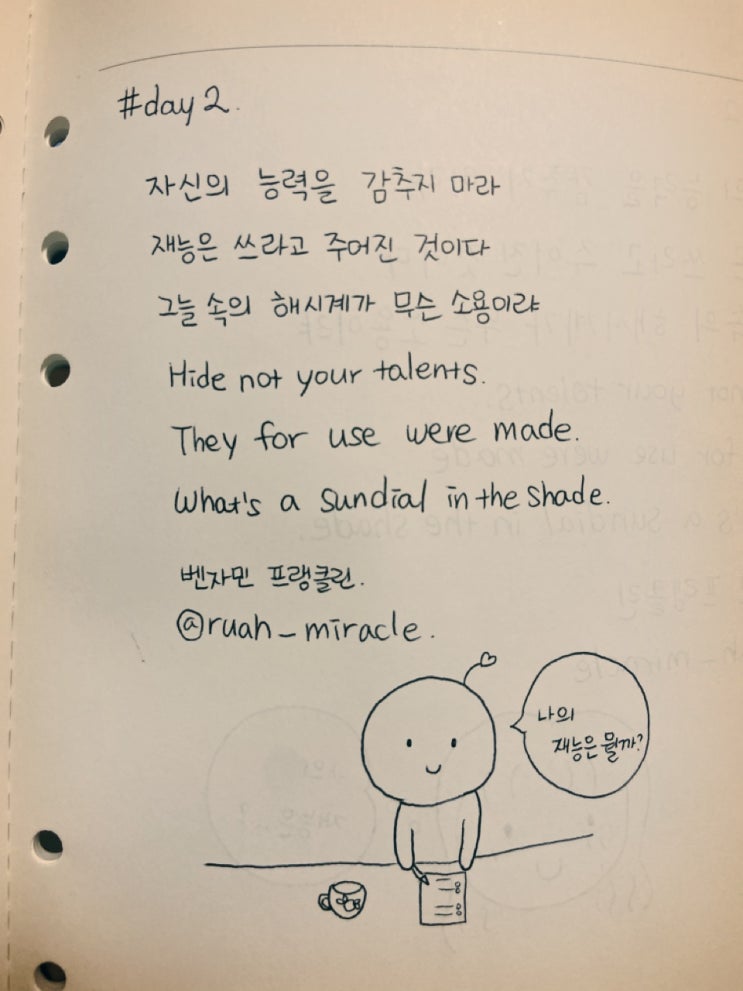 #day 2.
자신의 능력을 감추지 마라
재능은 쓰라고 주어진 것이다
그늘 속의 해시계가 무슨 소용이랴
Hide not your talents.
They for use were made.
What's a sundial in the shade.
벤자민 프랭클린.
@ruah_miracle.
나의
재능은 뭘까?